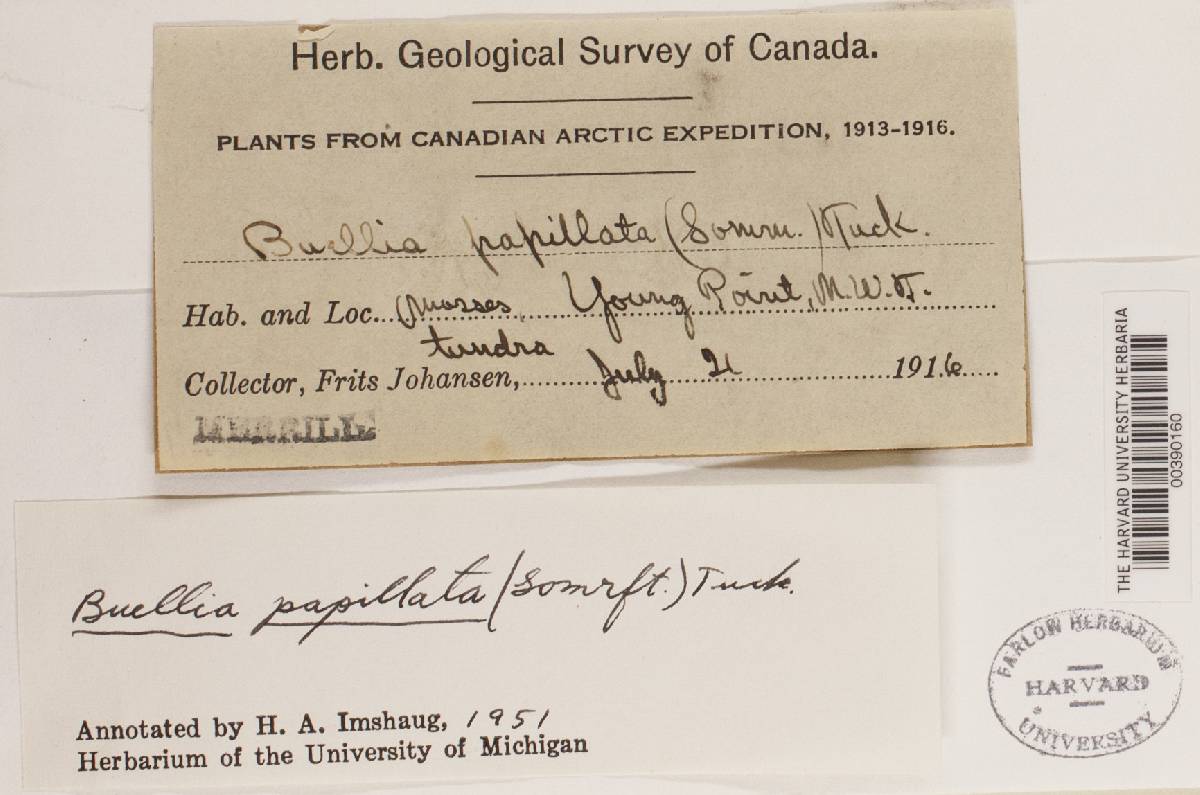 Herb. Geological Survey of Canada.
PLANTS FROM CANADIAN ARCTIC EXPEDITION, 1913-1916.
Buellia papillata (Somm.) Tuck.
Hab. and Loc. (Mosses, Young Point, N.W.T.
tundra
Collector, Frits Johansen, July 21 1916
MERRILL
Buellia papillata (Somrft.) Tuck.
Annotated by H. A. Imshaug, 1951
Herbarium of the University of Michigan
THE HARVARD UNIVERSITY HERBARIA
00390160
FARLOW HERBARIUM
HARVARD
UNIVERSITY